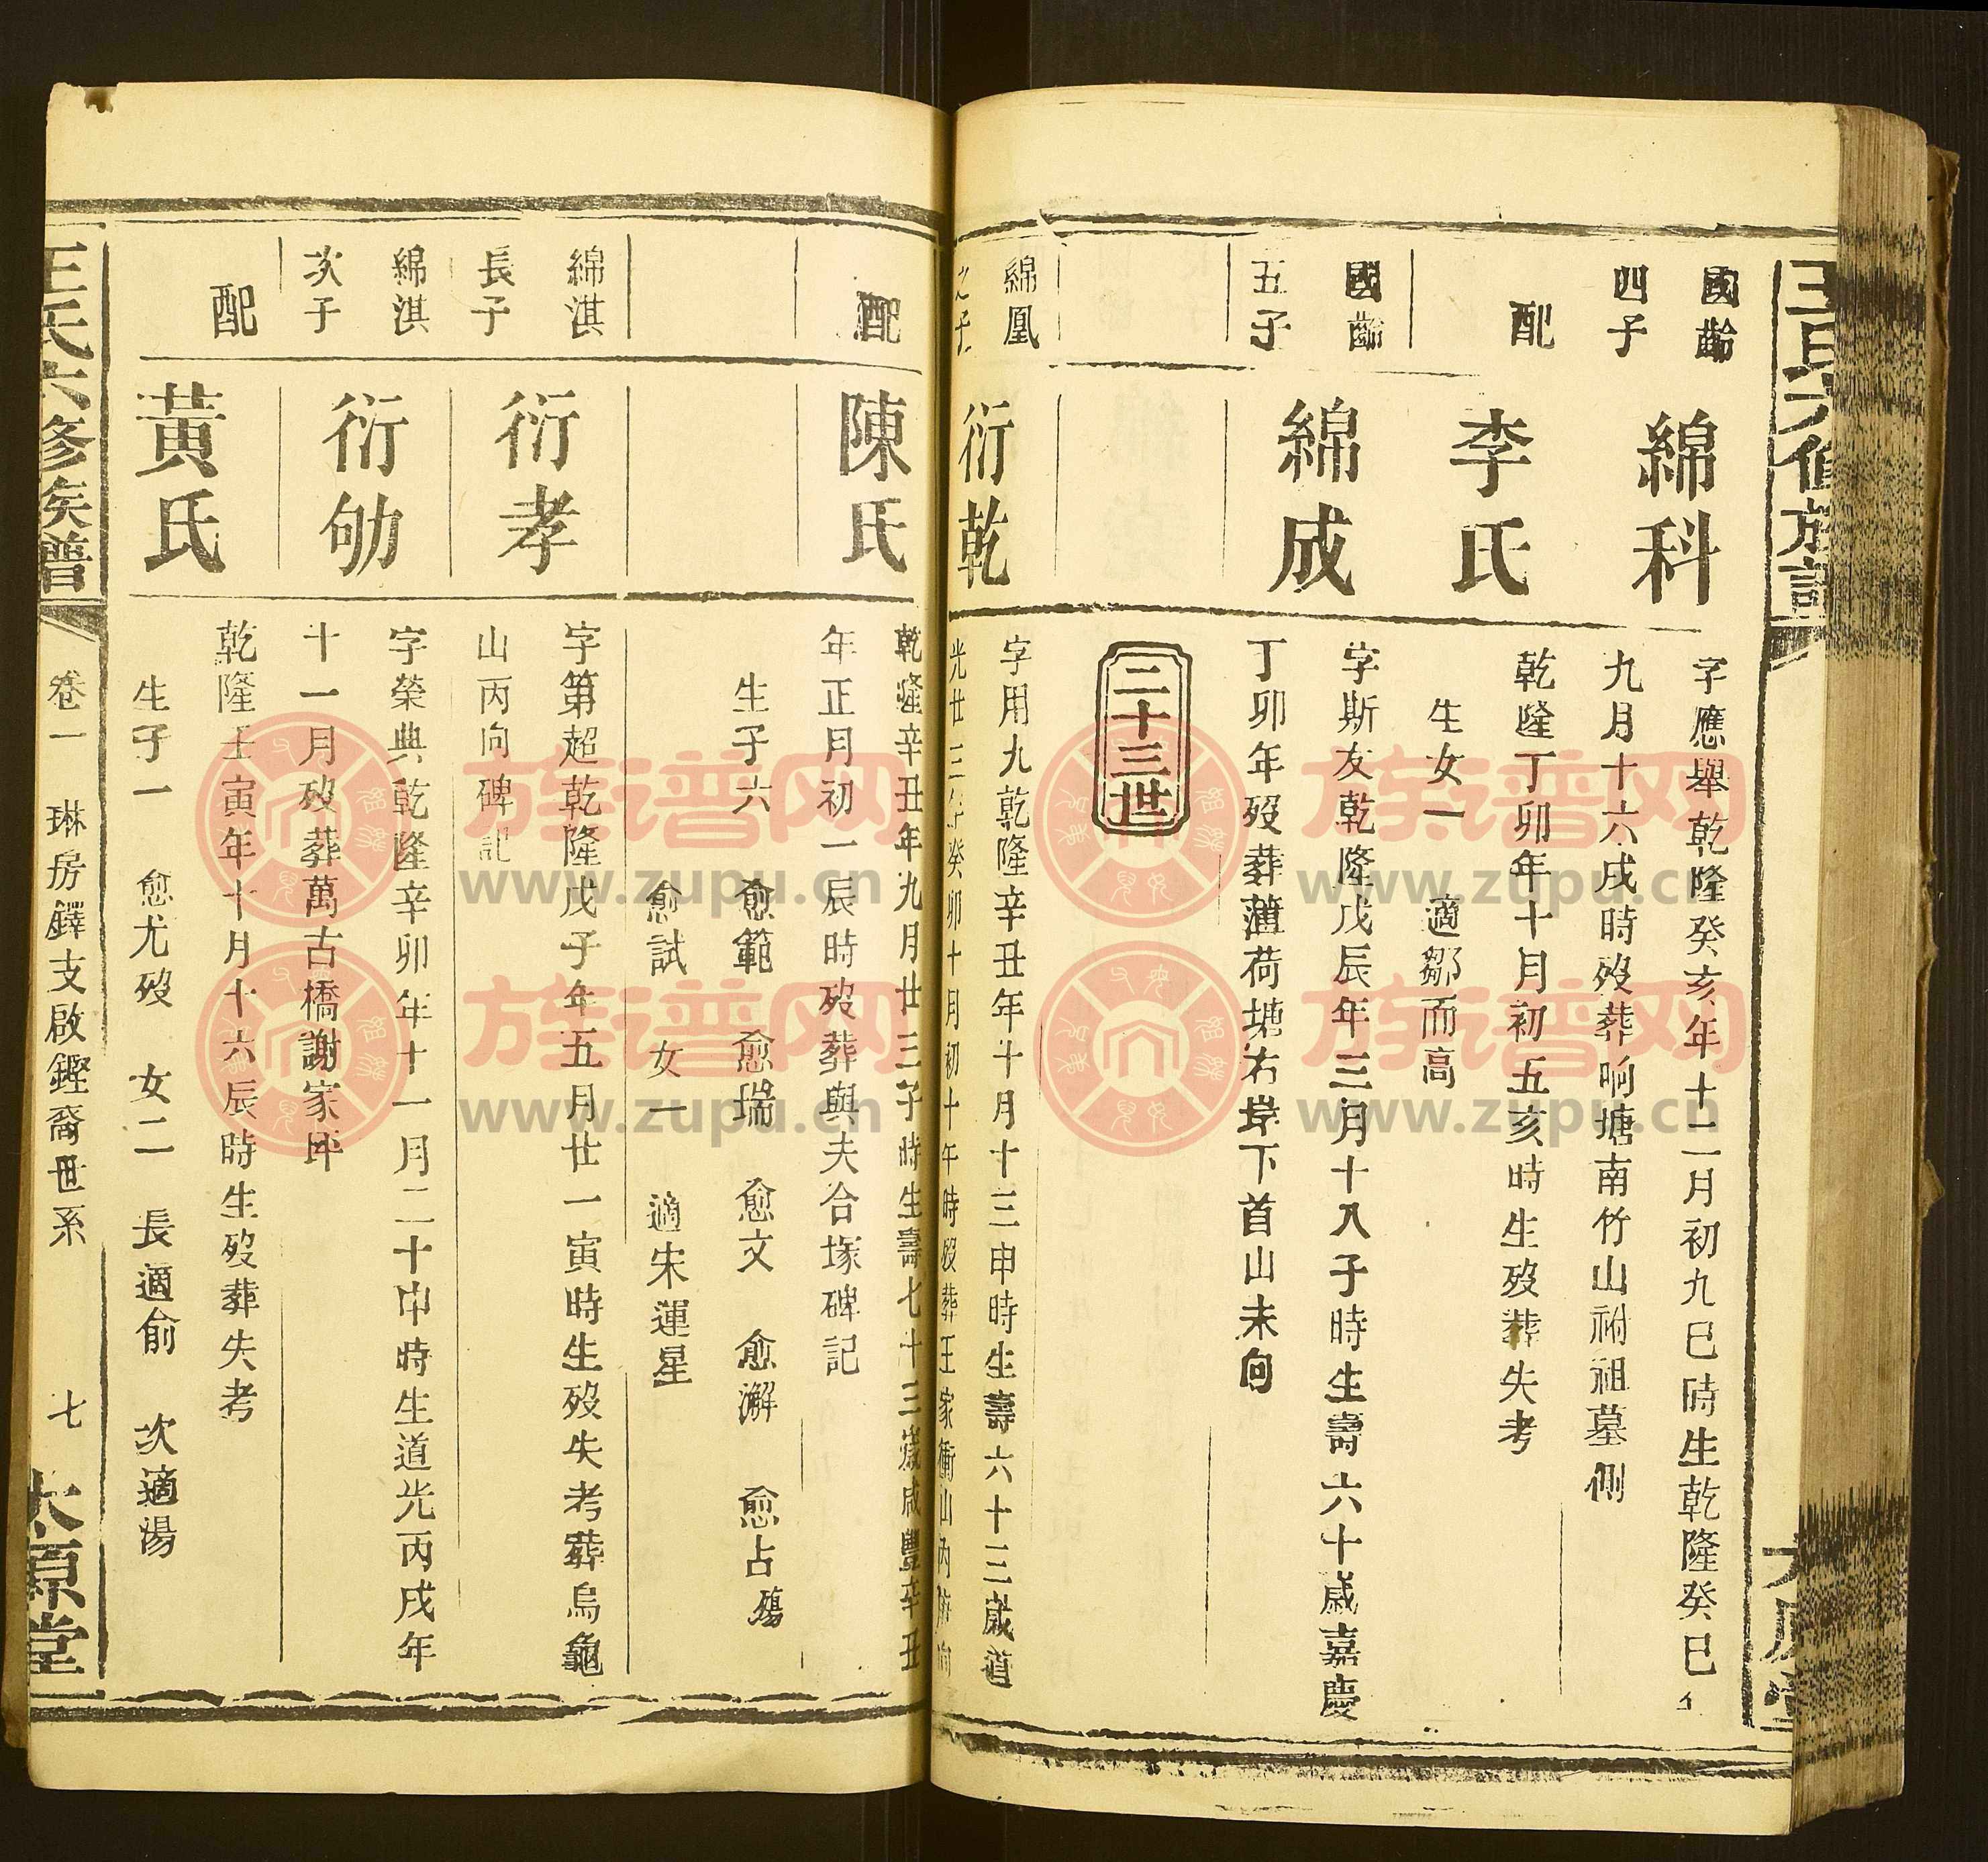 王氏六修族譜
國齡
四子
綿科
字應舉乾隆癸亥年十二月初九巳時生乾隆癸巳
九月十六戌時歿葬响塘南竹山祔祖墓側
配
李氏
乾隆丁卯年十月初五亥時生歿葬失考
生女一 適鄒而高
國齡
五子
綿成
字斯友乾隆戊辰年三月十八子時生壽六十歲嘉慶
丁卯年歿葬蓮荷塘右塝下首山未向
二十三世
綿凰
之子
衍乾
字用九乾隆辛丑年十月十三申時生壽六十三歲道
光廿三年癸卯十月初十午時歿葬王家衝山丙向
配
陳氏
乾隆辛丑年九月廿三子時生壽七十三歲咸豐辛丑
年正月初一辰時歿葬與夫合塚碑記
生子六 愈範 愈瑞 愈文 愈澥 愈占殤
愈試 女一 適宋運星
綿淇
長子
衍孝
字第超乾隆戊子年五月廿一寅時生歿失考葬烏龜
山丙向碑記
綿淇
次子
衍劬
字榮典乾隆辛卯年十一月二十申時生道光丙戌年
十一月歿葬萬古橋謝家坤
配
黃氏
乾隆壬寅年十月十六辰時生歿葬失考
生子一 愈尤歿 女二 長適俞 次適湯
王氏六修族譜
卷一 琳房鐸支啟鏗裔世系
七
太原堂
族谱网
www.zupu.cn
族谱网
www.zupu.cn
族谱网
www.zupu.cn
族谱网
www.zupu.cn